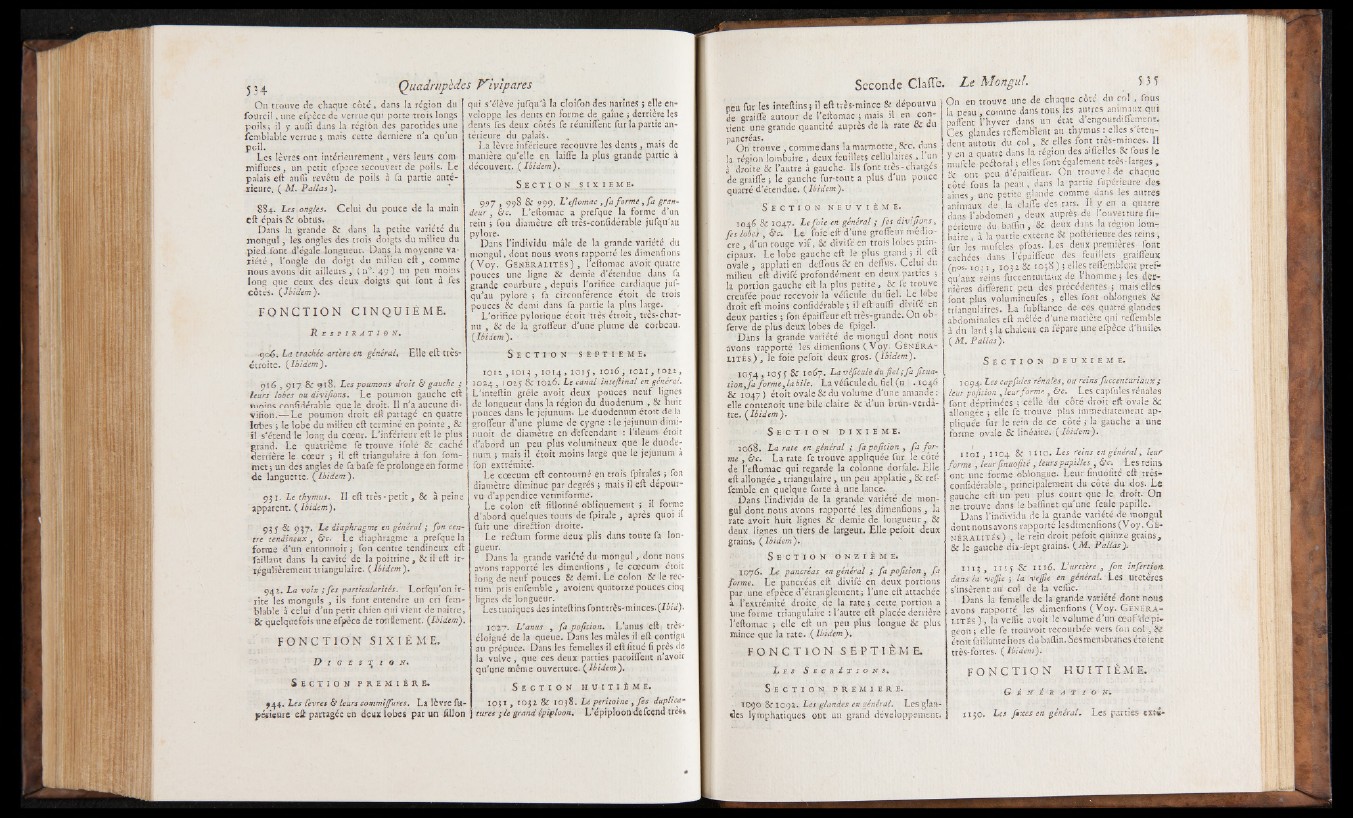 534 Quadrupèdes Vivipares
On trouve de chaque côté, dans la région du
sourcil, une espèce de verrue qui porte trois longs
poils; il y aussi dans la région des parotides une
semblable verrue; mais cette derniere n'a qu'un
poil.
Les lèvres ont intérieurement, vers leurs com-
missures, un petit espace recouvert de poils. Le
palais est aussi revêtu de poils à sa partie anté-
rieure. (M. Pallas).
884. Les ongles. Celui du pouce de la main
est épais & obtus.
Dans la grande & dans la petite variété du
mongul, les ongles des trois doigts du milieu du
pied sont d'égale longueur. Dans la moyenne va-
riété, l'ongle du doigt du milieu est, comme
nous avons dit ailleurs, (n°. 49) un peu moins
long que ceux des deux doigts qui sont à ses
côtés. (Ibidem).
FONCTION CINQUIEME.
RESPIRATION.
906. La trachée-artère en général. Elle est très-
étroite. (Ibidem).
916, 917 & 918. Les poumons droit & gauche;
leurs lobes ou divisions. Le poumon gauche est
moins considérable que le droit. Il n'a aucune di-
vision.—Le poumon droit est partagé en quatre
lobes; le lobe du milieu est terminé en pointe, &
il s'étend le long du cœur. L'inférieur est le plus
grand. Le quatrième se trouve isolé & caché
derrière le cœur; il est triangulaire à son som-
met; un des angles de sa base se prolonge en forme
de languette. (Ibidem).
931. Le thymus. Il est très-petit, & à peine
apparent. (Ibidem).
935 & 937. Le diaphragme en général; son cen-
tre tendineux, &c. Le diaphragme a presque la
forme d'un entonnoir; son centre tendineux est
saillant dans la cavité de la poitrine, & il est ir-
régulièrement triangulaire. (Ibidem).
941. La voix; ses particularités. Lorsqu'on ir-
rite les monguls, ils font entendre un cri sem-
blable à celui d'un petit chien qui vient de naître,
& quelquefois une espèce de ronflement. (Ibidem).
FONCTION SIXIÈME.
DIGESTION.
SECTION PREMIERE.
944. Les lèvres & leurs commissures. La lèvre su-
périeure est partagée en deux lobes par un sillon
qui s'élève jusqu'à la cloison des narines; elle en-
veloppe les dents en forme de gaîne; derrière les
dents ses deux côtés se réunissent sur la partie an-
térieure du palais.
La lèvre inférieure recouvre les dents, mais de
manière qu'elle en laisse la plus grande partie à
découvert. (Ibidem).
SECTION SIXIEME.
997, 998 & 999. L'estomac, sa forme, sa gran-
deur, &c. L'estomac a presque la forme d'un
rein; son diamètre est très-considérable jusqu'au
pylore.
Dans l'individu mâle de la grande variété du
mongul, dont nous avons rapporté les dimensions
(Voy. GENERALITES), l'estomac avoit quatre
pouces une ligne & demie d'étendue dans sa
grande courbure, depuis l'orifice cardiaque jus-
qu'au pylore; sa circonférence étoit de trois
pouces & demi dans sa partie la plus large.
L'orifice pylorique étoit très étroit, très-char-
nu, & de la grosseur d'une plume de corbeau.
(Ibidem).
SECTION SEPTIEME.
1012, 1013, 1014, 1015, 1016, 1021, 1022,
1024, 1025 & 1026. Le canal intestinal en général.
L'intestin grêle avoit deux pouces neuf lignes
de longueur dans la région du duodenum, & huit
pouces dans le jejunum. Le duodenum étoit de la
grosseur d'une plume de cygne: le jejunum dimi-
nuoit de diamètre en descendant: l'ileum étoit
d'abord un peu plus volumineux que le duode-
num; mais il étoit moins large que le jejunum à
son extrémité.
Le cœcum est contourné en trois spirales; son
diamètre diminue par degrés; mais il est dépour-
vu d'appendice vermiforme.
Le colon est sillonné obliquement; il forme
d'abord quelques tours de spirale, après quoi il
suit une direction droite.
Le rectum forme deux plis dans toute sa lon-
gueur.
Dans la grande variété du mongul, dont nous
avons rapporté les dimensions, le cœcum étoit
long de neuf pouces & demi. Le colon & le rec-
tum pris ensemble, avoient quatorze pouces cinq
lignes de longueur.
Les tuniques des intestins sont très-minces. (Ibid).
1027. L'anus, sa position. L'anus est très-
éloigné de la queue. Dans les mâles il est contigu
au prépuce. Dans les femelles il est situé si près de
la vulve, que ces deux parties paroissent n'avoir
qu'une même ouverture. (Ibidem).
SECTION HUITIÈME.
1031, 1032 & 1038. Le peritoine, ses duplica-
tures; le grand épiploon. L'épiploon descend très-
Seconde Classe. Le Mongul. 535
peu sur les intestins; il est très-mince & dépourvu
de graisse autour de l'estomac; mais il en con-
tient une grande quantité auprès de la rate & du
pancréas.
On trouve, comme dans la marmotte, &c. dans
la région lombaire, deux feuillets cellulaires, l'un
à droite & l'autre à gauche. Ils sont très-chargés
de graisse; le gauche sur-tout a plus d'un pouce
quarré d'étendue. (Ibidem).
SECTION NEUVIÉME.
1046 & 1047. Le foie en général; ses divisions,
ses lobes, &c. Le foie est d'une grosseur médio-
cre, d'un rouge vif, & divisé en trois lobes prin-
cipaux. Le lobe gauche est le plus grand; il est
ovale, applati en dessous & en dessus. Celui du
milieu est divisé profondément en deux parties;
la portion gauche est la plus petite, & se trouve
creusée pour recevoir la vésicule du fiel. Le lobe
droit est moins considérable; il est aussi divisé en
deux parties; son épaisseur est très-grande. On ob-
serve de plus deux lobes de spigel.
Dans la grande variété de mongul dont nous
avons rapporté les dimensions (Voy. GENERA-
LITÉS), le foie pesoit deux gros. (Ibidem).
1054, 1055 & 1067. La vésicule du fiel; sa situa-
tion, sa forme, la bile. La vésicule du fiel (n°. 1046
& 1047) étoit ovale & du volume d'une amande:
elle contenoit une bile claire & d'un brun-verdâ-
tre. (Ibidem).
SECTION DIXIEME.
1068. La rate en général; sa position, sa for-
me, &c. La rate se trouve appliquée sur le côté
de l'estomac qui regarde la colonne dorsale. Elle
est allongée, triangulaire, un peu applatie, & res-
semble en quelque sorte à une lance.
Dans l'individu de la grande variété de mon-
gul dont nous avons rapporté les dimensions, la
rate avoit huit lignes & demie de longueur, &
deux lignes un tiers de largeur. Elle pesoit deux
grains. (Ibidem).
SECTION ONZIEME.
1076. Le pancréas en général; sa position, sa
forme. Le pancréas est divisé en deux portions
par une espèce d'étranglement; l'une est attachée
à l'extrémité droite de la rate; cette portion a
une forme triangulaire: l'autre est placée derrière
l'estomac; elle est un peu plus longue & plus
mince que la rate. (Ibidem).
FONCTION SEPTIÈME.
LES SECRÉTIONS.
SECTION PREMIERE.
1090 & 1092. Les glandes en général. Les glan-
des lymphatiques ont un grand développement.
On en trouve une de chaque côté du col, sous
la peau, comme dans tous les autres animaux qui
passent l'hyver dans un état d'engourdissement.
Ces glandes ressemblent au thymus: elles s'éten-
dent autour du col, & elles sont très-minces. Il
y en a quatre dans la région des aisselles & sous le
muscle pectoral; elles sont également très-larges,
& ont peu d'épaisseur. On trouve de chaque
côté sous la peau, dans la partie supérieure des
aines, une petite glande comme dans les autres
animaux de la classe des rats. Il y en a quatre
dans l'abdomen, deux auprès de l'ouverture su-
périeure du bassin, & deux dans la région lom-
baire, à la partie externe & postérieure des reins,
sur les muscles psoas. Les deux premières sont
cachées dans l'épaisseur des feuillets graisseux
(nos. 1031, 1032 & 1038); elles ressemblent pres-
qu'aux reins succenturiaux de l'homme; les der-
nières diffèrent peu des précédentes; mais elles
sont plus volumineuses, elles sont oblongues &
triangulaires. La substance de ces quatre glandes
abdominales est mêlée d'une matière qui ressemble
à du lard; la chaleur en sépare une espèce d'huile.
(M. Pallas).
SECTION DEUXIEME.
1094. Les capsules rénales, ou reins succenturiaux;
leur position, leur forme, &c. Les capsules rénales
sont déprimées: celle du côté droit est ovale &
allongée; elle se trouve plus immédiatement ap-
pliquée sur le rein de ce côté: la gauche a une
forme ovale & linéaire. (Ibidem).
1101, 1104 & 1110. Les reins en général, leur
forme, leur sinuosité, leurs papilles, &c. Les reins
ont une forme oblongue. Leur sinuosité est très-
considérable, principalement du côté du dos. Le
gauche est un peu plus court que le droit. On
ne trouve dans le bassinet qu'une seule papille.
Dans l'individu de la grande variété de mongul
dont nous avons rapporté les dimensions (Voy. GÉ-
NÉRALITÉS), le rein droit pesoit quinze grains,
& le gauche dix-sept grains. (M. Pallas).
1113, 1115 & 1116. L'uretère, son insertion
dans la vessie; la vessie en général. Les uretères
s'insèrent au col de la vessie.
Dans la femelle de la grande variété dont nous
avons rapporté les dimensions (Voy. GENERA-
LITÉS), la vessie avoit le volume d'un œuf de pi-
geon; elle se trouvoit recourbée vers son col, &
étoit saillante hors du bassin. Ses membranes étoient
très-fortes. (Ibidem).
FONCTION HUITIÈME.
GÉNÉRATION.
1130. Les sexes en général. Les parties exté-